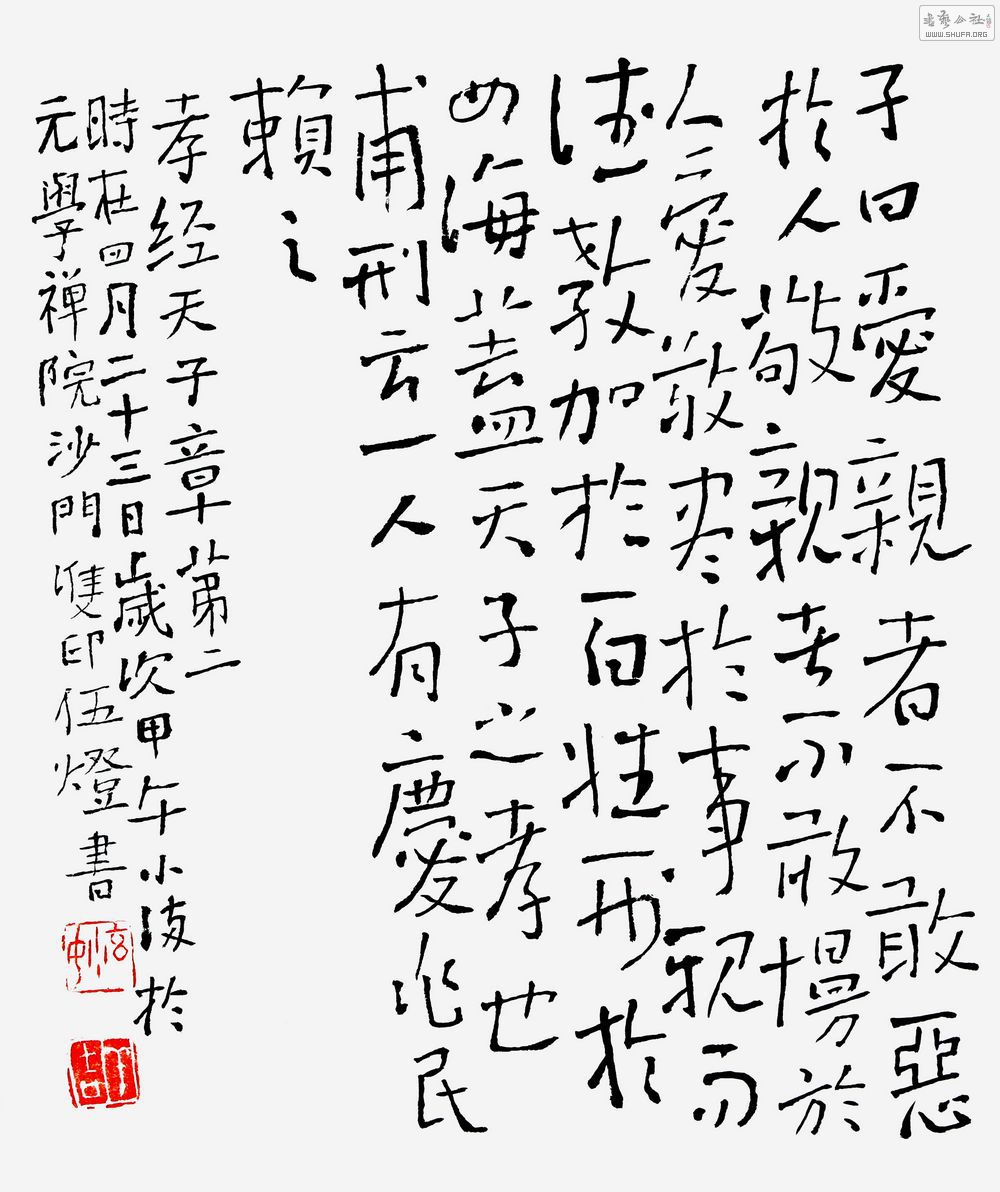 子曰愛親者不敢惡
於人敬親者不敢慢於
人〻愛敬尽於事親而
德教加於百姓刑於
四海蓋天子之孝也
甫刑云一人有慶兆民
賴之
孝经天子章第二
時在四月二十三日歲次甲午小滿於
元學禅院沙門雙印伍燈書
WWW.SHUFA.ORG